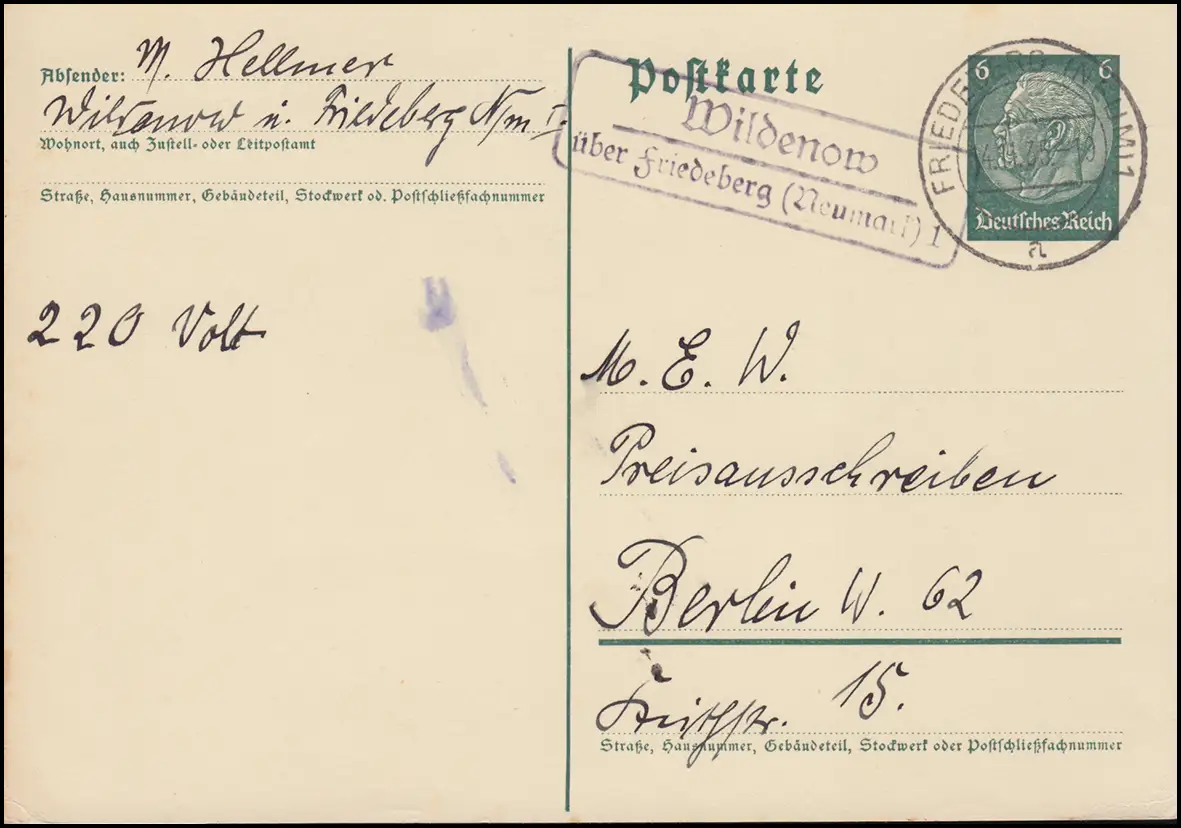 Absender: M. Hellmer
Wildenow ü. Friedeberg N/m I.
Wohnort, auch Zustell- oder Leitpostamt
Straße, Hausnummer, Gebäudeteil, Stockwerk od. Postschließfachnummer
220 Volt
Postkarte
Wildenow
über Friedeberg (Neumark) 1
FRIEDEBERG (NEUM) 1
a
6 6
Deutsches Reich
M. E. W.
Preisausschreiben
Berlin W. 62
15.
Straße, Hausnummer, Gebäudeteil, Stockwerk oder Postschließfachnummer